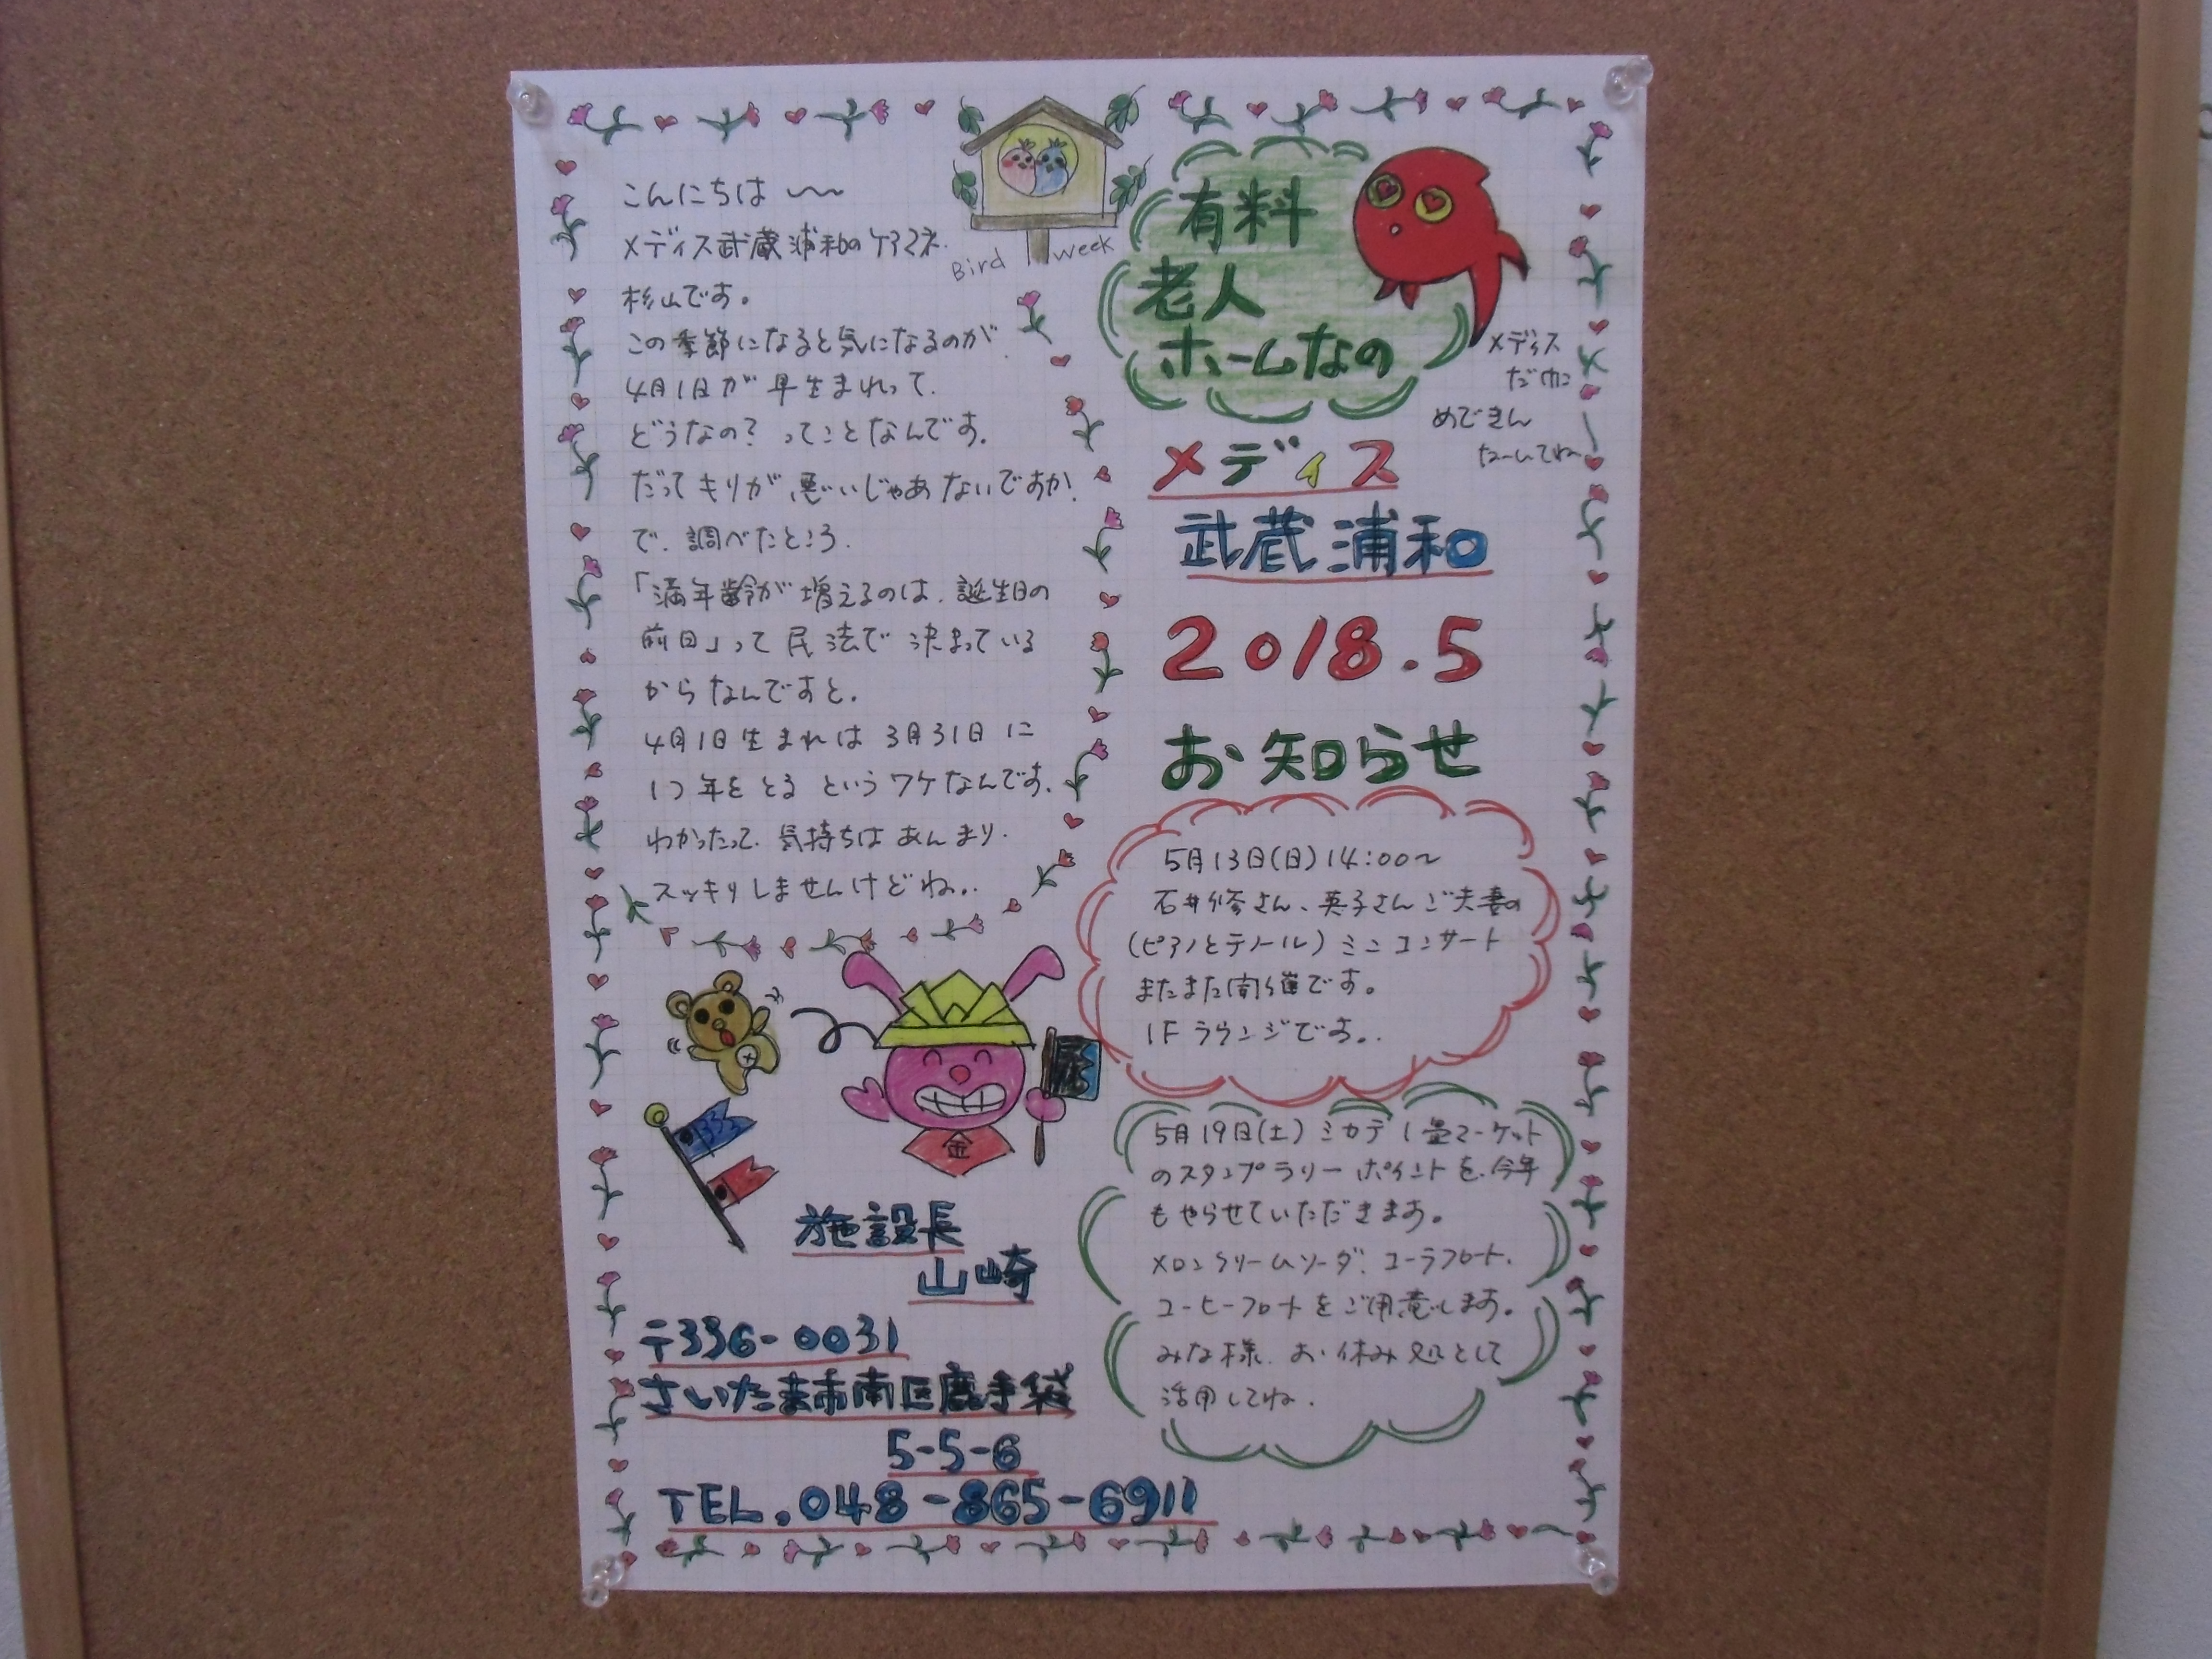 こんにちは 〜
メディス武蔵浦和のケアマネ.
杉山です。
この季節になると気になるのが
4月1日が早生まれって.
どうなの? ってことなんです。
だってキリが悪いじゃあないですか.
で.調べたところ.
「満年齢が増えるのは.誕生日の
前日」って民法で決まっている
からなんですと.
4月1日生まれは3月31日に
1つ年をとるというワケなんです.
わかったって.気持ちはあんまり.
スッキリしませんけどね..
Bird week
有料
老人
ホームなの
メディス
めできん
メディス
武蔵浦和
2018.5
お知らせ
5月13日(日)14:00〜
石井修さん、英子さんご夫妻の
(ピアノとテノール)ミニコンサート
またまた開催です。
1Fラウンジです..
5月19日(土)ミカデ1畳マーケット
のスタンプラリーポイントを.今年
もやらせていただきます。
メロンクリームソーダ.コーラフロート.
コーヒーフロートをご用意します。
みな様.お休み処として
活用してね.
金
施設長
山崎
〒336-0031
さいたま市南区鹿手袋
5-5-6
TEL.048-865-6911